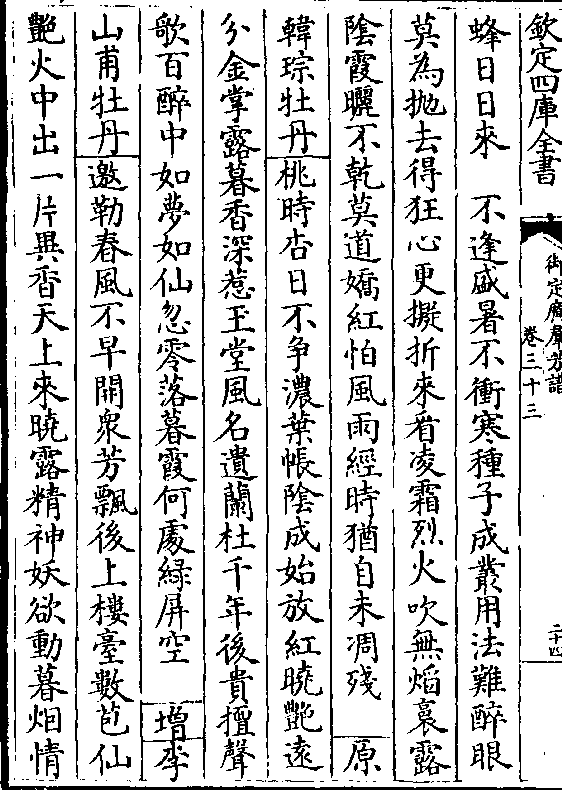 欽定四庫全書
御定廣羣芳譜
卷三十三
二十四
蜂日日來　不逢盛暑不衝寒種子成叢用法難醉眼
莫為抛去得狂心更擬折來看凌霜烈火吹無熖裛露
陰霞曬不乾莫道嬌紅怕風雨經時猶自未凋殘　原
韓琮牡丹桃時杏日不争濃葉帳陰成始放紅曉艷遠
分金掌露暮香深惹玉堂風名遺蘭杜千年後貴擅聲
歌百醉中如夢如仙忽零落暮霞何處緑屏空　增李
山甫牡丹邀勒春風不早開衆芳飄後上樓臺數苞仙
艷火中出一片異香天上來曉露精神妖欲動暮烟情